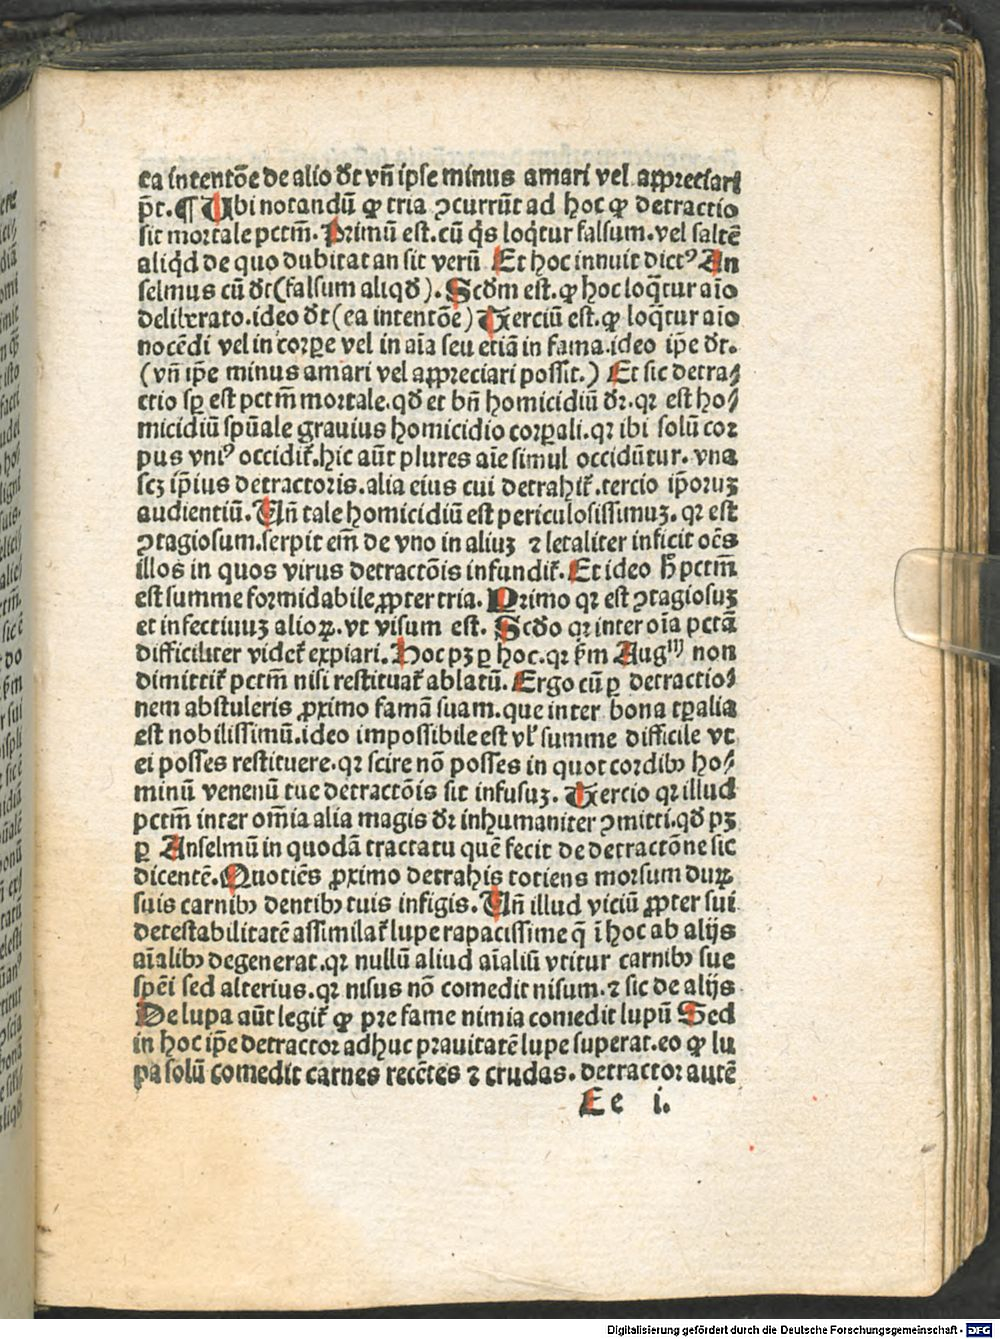 ea intentõe de alio ðt vñ ipse minus amari vel appreciari
p̃t. ¶ Ubi notandũ ꝙ tria ꝯcurrũt ad hoc ꝙ detractio
sit mortale pctm̃. Primũ est. cũ q̃s loq̃tur falsum. vel saltẽ
aliq̃d de quo dubitat an sit verũ Et hoc innuit dictꝰ An
selmus cũ ðt (falsum aliqð). Scðm est. ꝙ hoc loq̃tur aĩo
deliberato. ideo ðt (ea intentõe) Terciũ est. ꝙ loq̃tur aĩo
nocẽdi vel in corpe vel in aĩa seu etiã in fama. ideo ip̃e ðt.
(vñ ip̃e minus amari vel appreciari possit.) Et sic detra⸗
ctio sp̃ est pctm̃ mortale. qð et bñ homicidiũ ðr. qꝛ est ho⸗
micidiũ spũale grauius homicidio corꝑali. qꝛ ibi solũ cor
pus vniꝰ occidit̃. hic aũt plures aĩe simul occidũtur. vna
scꝫ ip̃ius detractoris. alia eius cui detrahit̃. tercio ip̃oruꝫ
audientiũ. Uñ tale homicidiũ est periculosissimuꝫ. qꝛ est
ꝯtagiosum. serpit em̃ de vno in aliuꝫ ⁊ letaliter inficit oẽs
illos in quos virus detractõis infundit̃. Et ideo h̃ pctm̃
est summe formidabile ꝓpter tria. Primo qꝛ est ꝯtagiosuꝫ
et infectiuuꝫ alioꝝ. vt visum est. Scðo qꝛ inter oĩa pctã
difficiliter videt̃ expiari. Hoc pꝫ ꝑ hoc. qꝛ ẜm Augᵐ non
dimittit̃ pctm̃ nisi restituat̃ ablatũ. Ergo cũ ꝑ detractio⸗
nem abstuleris ꝓximo famã suam. que inter bona tꝑalia
est nobilissimũ. ideo impossibile est vł summe difficile vt
ei posses restituere. qꝛ scire nõ posses in quot cordibꝰ ho⸗
minũ venenũ tue detractõis sit infusuꝫ. Tercio qꝛ illud
pctm̃ inter om̃ia alia magis ðr inhumaniter ꝯmitti. qð pꝫ
ꝑ Anselmũ in quodã tractatu quẽ fecit de detractõne sic
dicentẽ. Quotiẽs ꝓximo detrahis totiens morsum duꝝ
suis carnibꝰ dentibꝰ tuis infigis. Uñ illud viciũ ꝓpter sui
detestabilitatẽ assimilat̃ lupe rapacissime q̃ ĩ hoc ab alijs
aĩalibꝰ degenerat. qꝛ nullũ aliud aĩaliũ vtitur carnibꝰ sue
spẽi sed alterius. qꝛ nisus nõ comedit nisum. ⁊ sic de alijs
De lupa aũt legit̃ ꝙ pre fame nimia comedit lupũ Sed
in hoc ip̃e detractor adhuc prauitatẽ lupe superat. eo ꝙ lu
pa solũ comedit carnes recẽtes ⁊ crudas. detractor autẽ
Ee i.
Digitalisierung gefördert durch die Deutsche Forschungsgemeinschaft - DFG